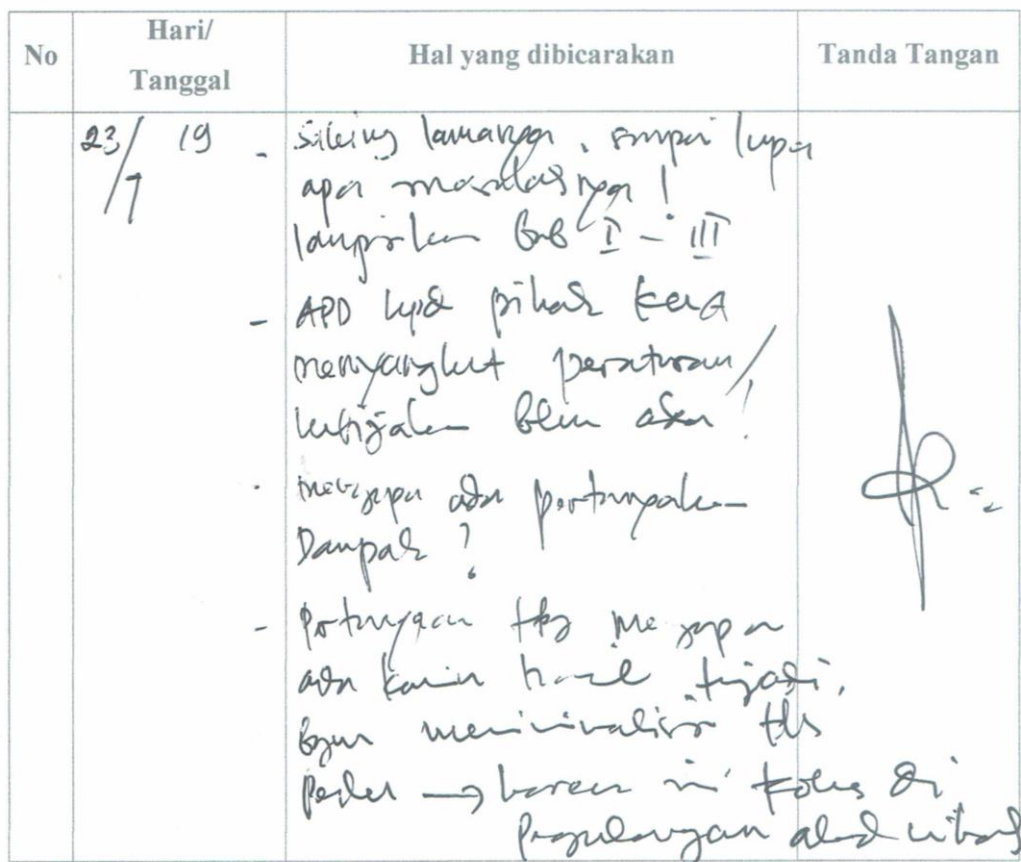 No
Hari/
Tanggal
Hal yang dibicarakan
Tanda Tangan
23/7 19
- Saking lamanya, sampai lupa
apa masalahnya!
lampirkan Bab I - III
- APD kpd pihak
menyangkut peraturan/
kebijakan blm ada!
- mengapa ada pertanyaan
Dampak?
- Pertanyaan ttg mengapa
ada hasil terjadi,
meminimalisir ttg
→ karena ini fokus di